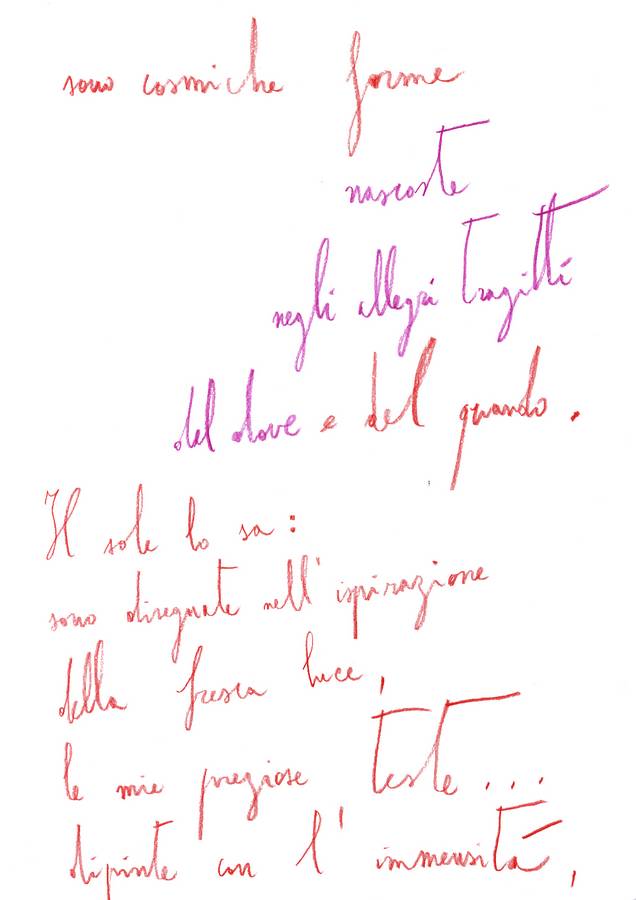 sono cosmiche forme
nascoste
negli allegri tragitti
del dove e del quando.
Il sole lo sa:
sono disegnate nell'ispirazione
della fresca luce,
le mie preziose teste...
dipinte con l'immensità,